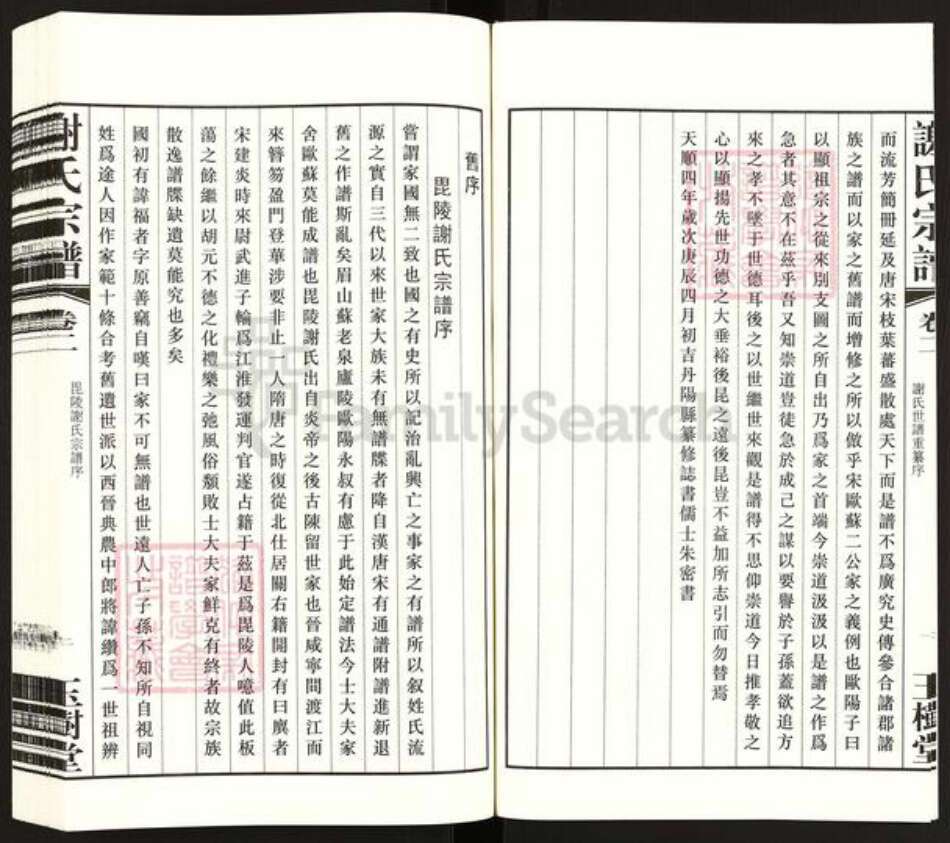 謝氏宗譜
卷二
謝氏世譜重纂序
玉樹堂
而流芳簡冊延及唐宋枝葉蕃盛散處天下而是譜不爲廣究史傳參合諸郡諸
族之譜而以家之舊譜而增修之所以倣乎宋歐蘇二公家之義例也歐陽子曰
以顯祖宗之從來別支圖之所自出乃爲家之首端今崇道汲汲以是譜之作爲
急者其意不在茲乎吾又知崇道豈徒急於成己之謀以要譽於子孫蓋欲追方
來之孝不墜于世德耳後之以世繼世來觀是譜得不思仰崇道今日推孝敬之
心以顯揚先世功德之大垂裕後昆之遠後昆豈不益加所志引而勿替焉
天順四年歲次庚辰四月初吉丹陽縣纂修誌書儒士朱密書
舊序
毘陵謝氏宗譜序
嘗謂家國無二致也國之有史所以記治亂興亡之事家之有譜所以叙姓氏流
源之實自三代以來世家大族未有無譜牒者降自漢唐宋有通譜附譜進新退
舊之作譜斯亂矣眉山蘇老泉廬陵歐陽永叔有慮于此始定譜法今士大夫家
舍歐蘇莫能成譜也毘陵謝氏出自炎帝之後古陳留世家也晉咸寧間渡江而
來簪笏盈門登華涉要非止一人隋唐之時復從北仕居關右籍開封有曰廙者
宋建炎時來尉武進子輪爲江淮發運判官遂占籍于茲是爲毘陵人噫值此板
蕩之餘繼以胡元不德之化禮樂之弛風俗頹敗士大夫家鮮克有終者故宗族
散逸譜牒缺遺莫能究也多矣
國初有諱福者字原善竊自嘆曰家不可無譜也世遠人亡子孫不知所自視同
姓爲途人因作家範十條合考舊遺世派以西晉典農中郎將諱纘爲一世祖辨
謝氏宗譜
卷二
毘陵謝氏宗譜序
玉樹堂
FamilySearch